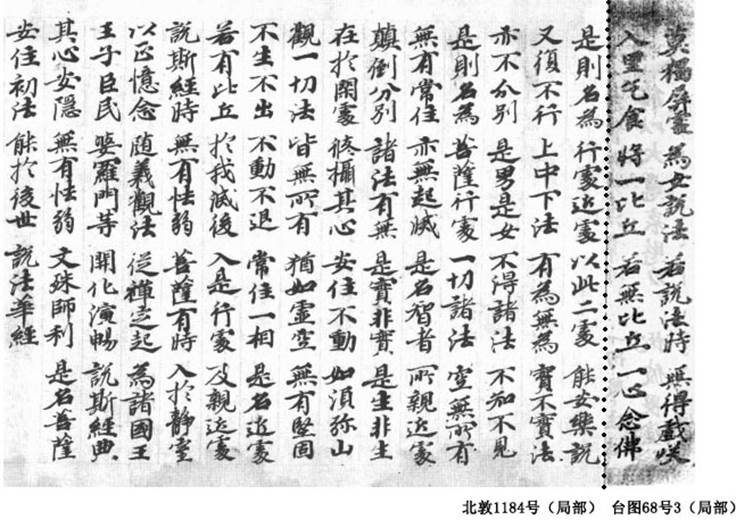 莫獨屏處 為女說法 若說法時 無得戲咲
入里乞食 將一比丘 若無比丘 一心念佛
是則名為 行處近處 以此二處 能安樂說
又復不行 上中下法 有為無為 實不實法
亦不分別 是男是女 不得諸法 不知不見
是則名為 菩薩行處 一切諸法 空無所有
無有常住 亦無起滅 是名智者 所親近處
顛倒分別 諸法有無 是實非實 是生非生
在於閑處 修攝其心 安住不動 如須弥山
觀一切法 皆無所有 猶如虛空 無有堅固
不生不出 不動不退 常住一相 是名近處
若有比丘 於我滅後 入是行處 及親近處
說斯經時 無有怯弱 菩薩有時 入於靜室
以正憶念 随義觀法 從禪定起 為諸國王
王子臣民 婆羅門等 開化演暢 說斯經典
其心安隱 無有怯弱 文殊師利 是名菩薩
安住初法 能於後世 說法華經
北敦1184号（局部） 台图68号3（局部）